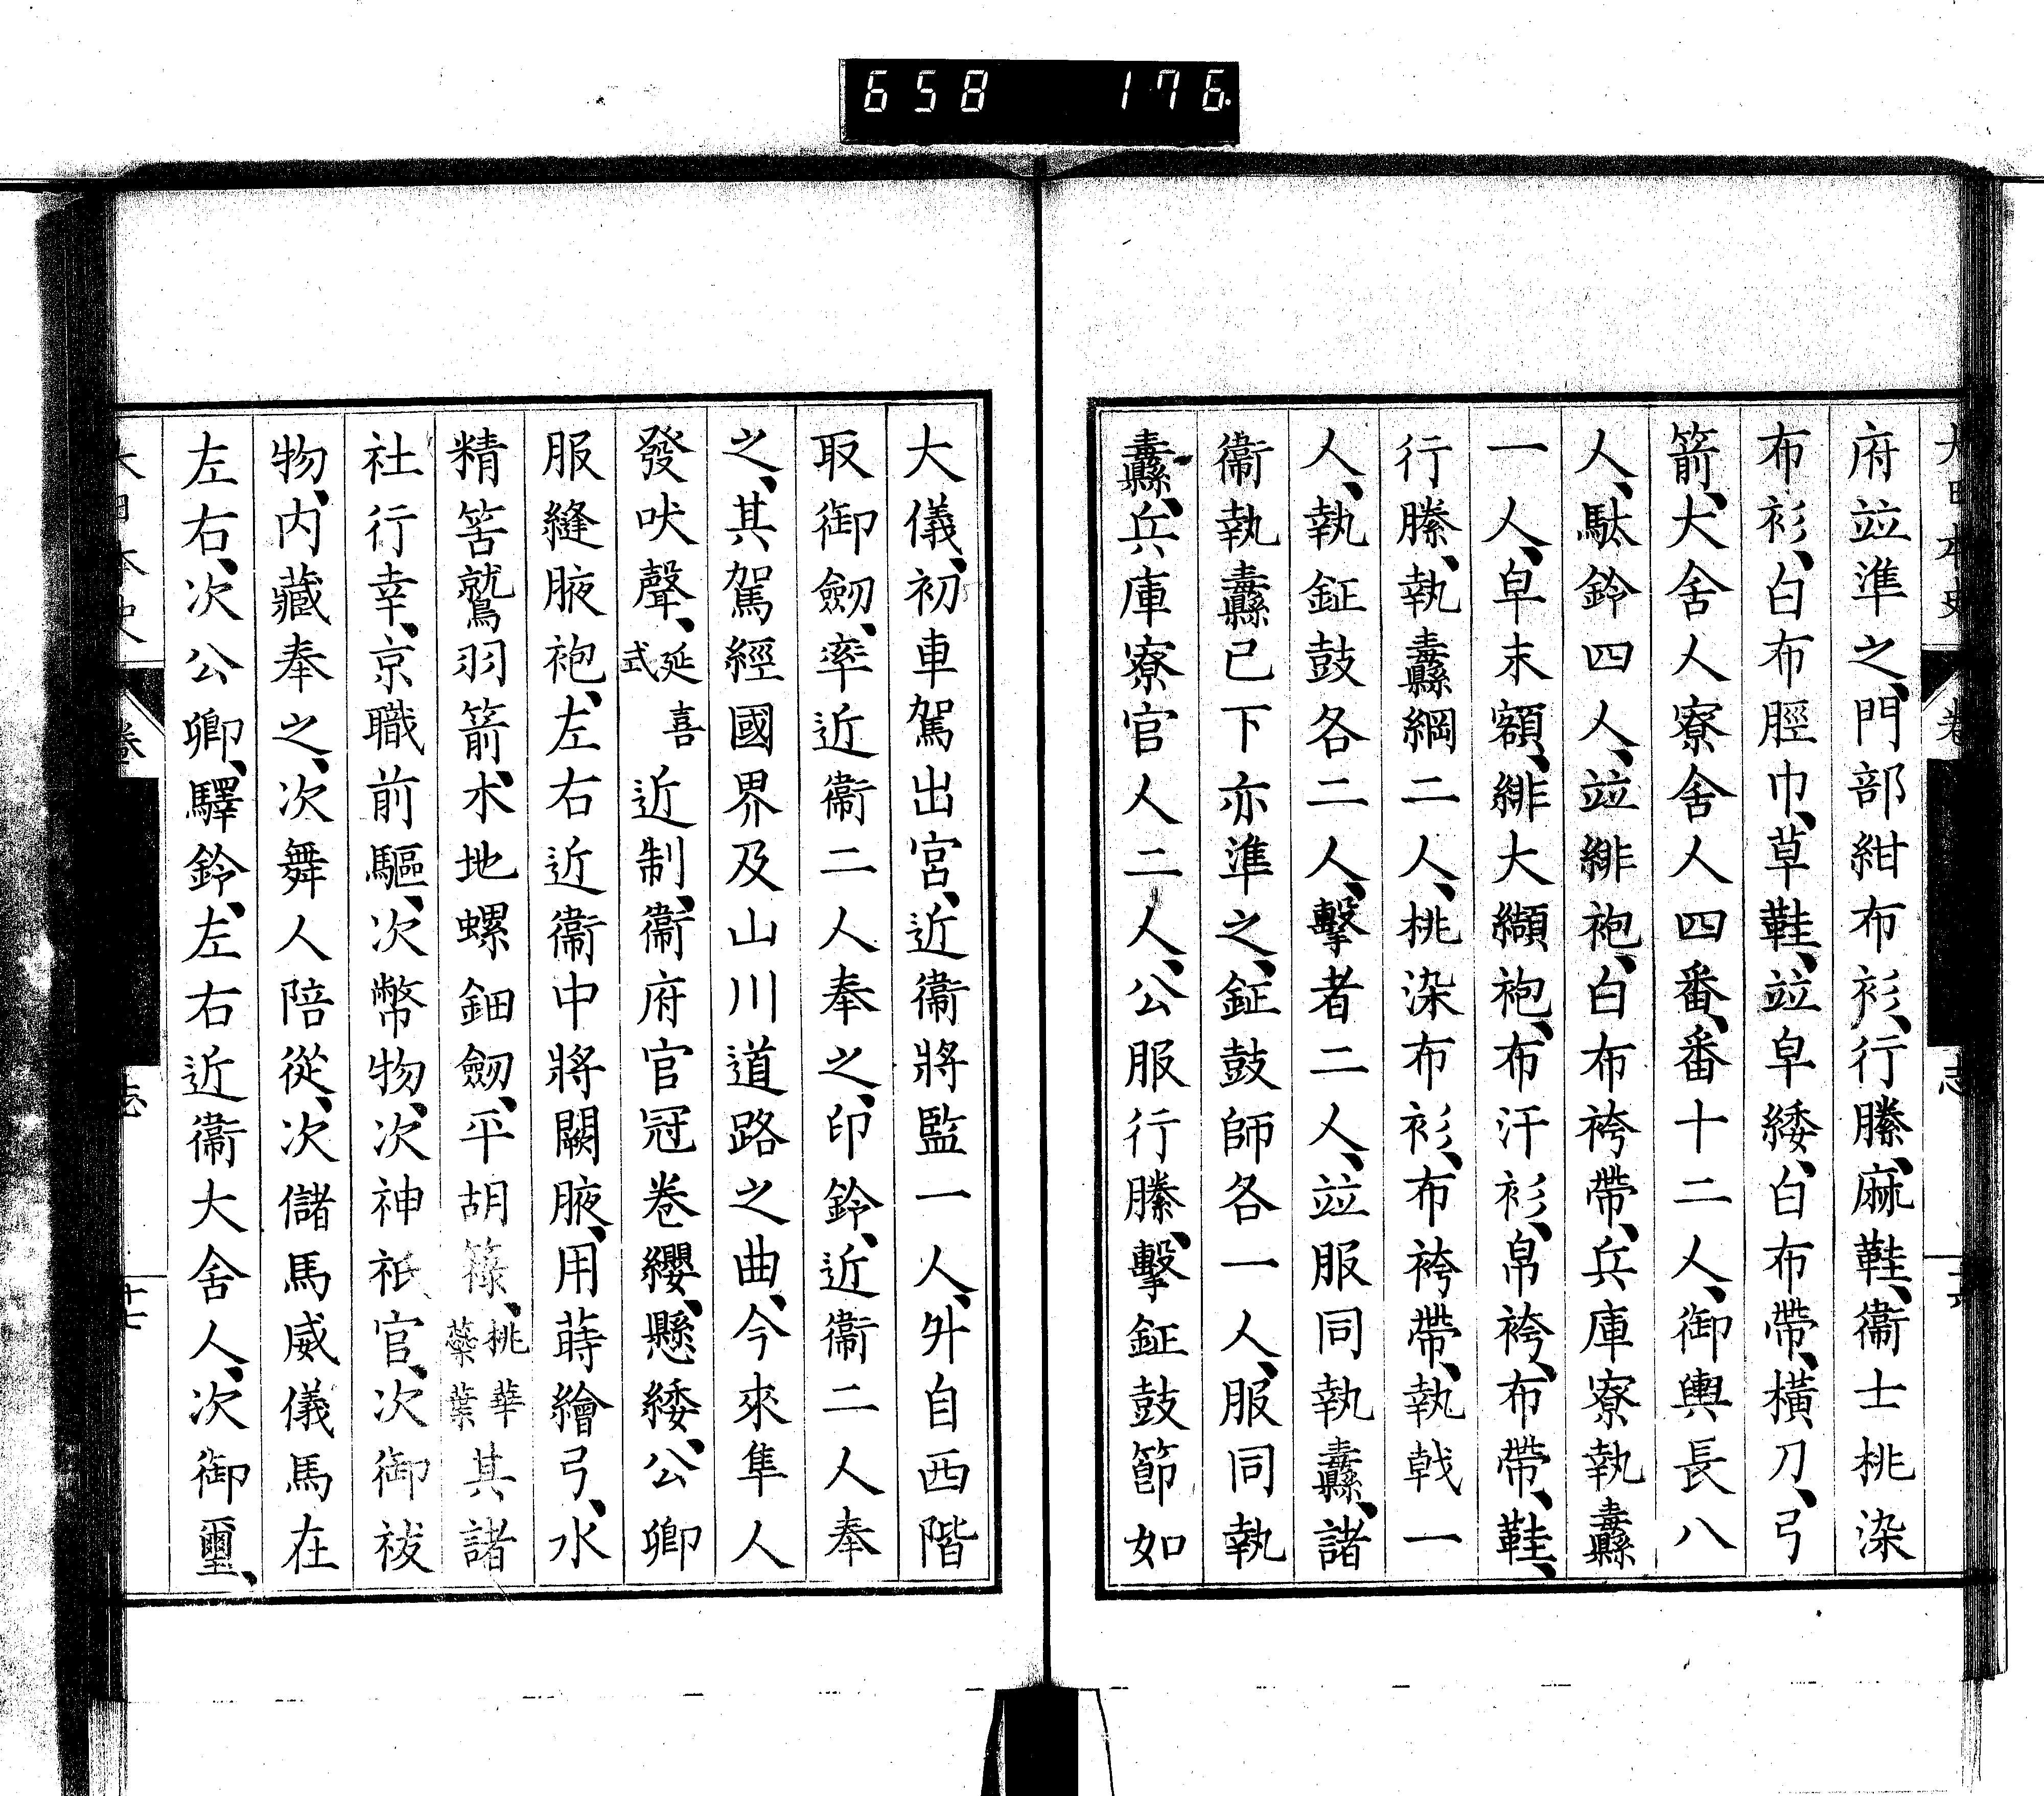 658 176
府竝準之、門部紺布衫、行縢、麻鞋、衞士桃染
布衫、白布脛巾、草鞋、竝皁緌、白布帶、橫刀、弓
箭、大舍人寮舍人四番、番十二人、御輿長八
人、駄鈴四人、竝緋袍、白布袴帶、兵庫寮執纛
一人、皁末額、緋大纈袍、布汗衫、帛袴、布帶、鞋、
行縢、執纛綱二人、桃染布衫、布袴帶、執戟一
人、執鉦鼓各二人、擊者二人、竝服同執纛、諸
衞執纛已下亦準之、鉦鼓師各一人、服同執
纛、兵庫寮官人二人、公服行縢、擊鉦鼓節如
大儀、初車駕出宮、近衞將監一人、升自西階
取御劒、率近衞二人奉之、印鈴、近衞二人奉
之、其駕經國界及山川道路之曲、今來隼人
發吠聲、延喜式近制、衞府官冠卷纓、懸緌、公卿
服縫腋袍、左右近衞中將闕腋、用蒔繪弓、水
精筈鷲羽箭、木地螺鈿劒、平胡籙、桃華蘂葉其諸
社行幸、京職前驅、次幣物、次神祇官、次御祓
物、內藏奉之、次舞人陪從、次儲馬威儀馬在
左右、次公卿、驛鈴、左右近衞大舍人、次御璽、